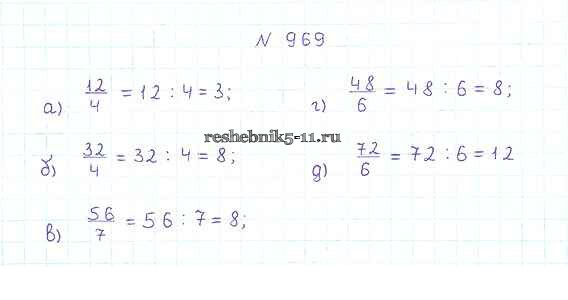 № 969
а) 12/4 = 12 : 4 = 3;
б) 32/4 = 32 : 4 = 8;
в) 56/7 = 56 : 7 = 8;
г) 48/6 = 48 : 6 = 8;
д) 72/6 = 72 : 6 = 12
reshebnik5-11.ru